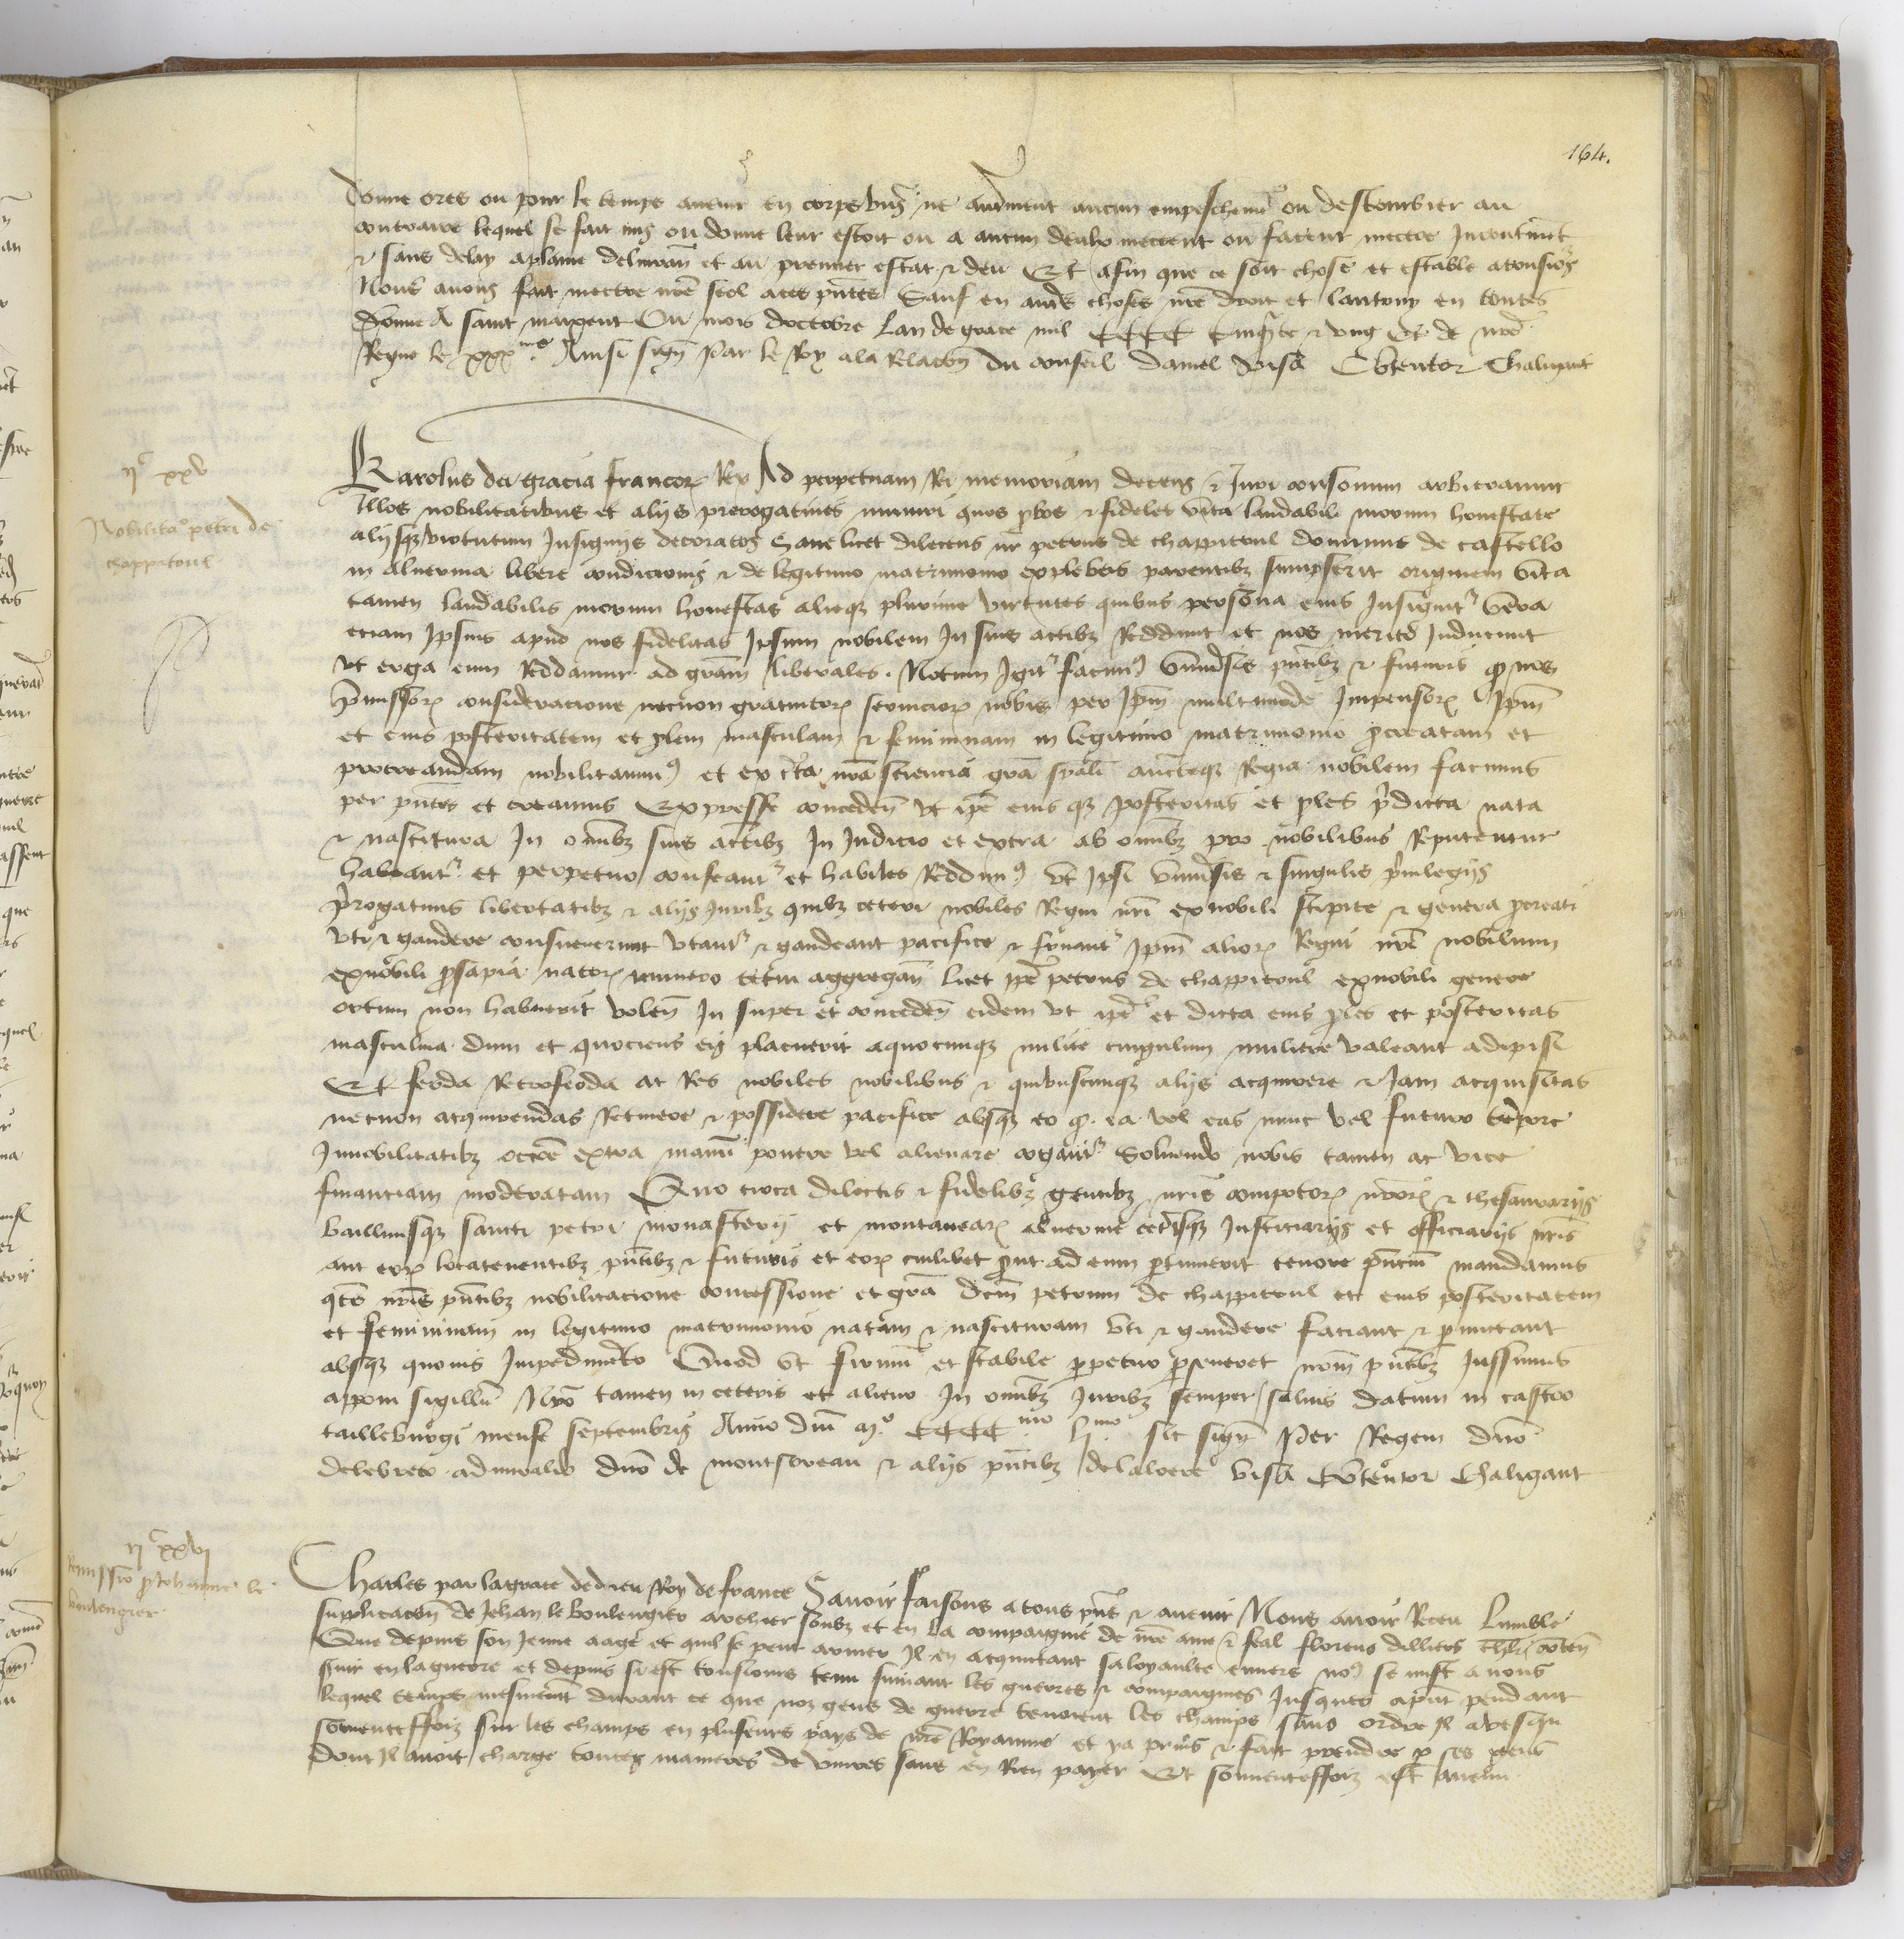 164.
donne ores ou pour le temps auenir en corps biens ne autrement aucun empeschement ou destourbier au
contraire lequel se fait mis ou donne leur estoit ou a aucun deulx mectent ou facent mectre Incontinent
et sans delay a plaine deliurance et au premier estat et deu Et afin que ce soit chose et estable a tousiours
Nous auons fait mectre nostre seel a ces presentes Sauf en autres choses nostre droit et lautruy en toutes
Donne A saint maixent Ou mois doctobre Lan de grace mil CCCC cinquante et ung Et de nostre
Regne le xxx me Ainsi signe Par le Roy a la Relacion du conseil Daniel Visa Contentor Chaligaut
ijc xxv
Nobilitacio petri de
chappitoul
Karolus dei gracia francorum Rex Ad perpetuam Rei memoriam decens et Juri consonum arbitramur
Illos nobilitatibus et alijs prerogatiuis muniri quos probos et fideles vita laudabili morum honestate
alijsque virtutum Insignijs decoratos Sane licet dilectus noster petrus de chappitoul dominus de castello
in aluernia libere condicionis et de legitimo matrimonio ex plebeis parentibus sumpserit originem vita
tamen laudabilis morum honestas alieque plurime virtutes quibus persona eius Insignitur vera
etiam Ipsius apud nos fidelitas Ipsum nobilem In suis actibus Reddunt et nos merito Inducunt
vt erga eum Reddamur ad graciam liberales. Notum Igitur facimus vniuersis presentibus et futuris quod nos
premissorum consideracione necnon gratuitorum seruiciorum nobis per Ipsum multimode Impensorum Ipsum
et eius posteritatem et prolem masculam et femininam in legitimo matrimonio procreatam et
procreandam nobilitamus et ex certa nostra sciencia gracia speciali auctoritateque Regia nobilem facimus
per presentes et creamus Expresse concedentes vt ipse eiusque posteritas et proles predicta nata
et nascitura In omnibus suis actibus In Judicio et extra ab omnibus pro nobilibus Reputentur
habeantur et perpetuo censeantur et habiles Reddimus vt Ipsi vniuersis et singulis priuilegijs
prerogatiuis libertatibus et alijs Juribus quibus ceteri nobiles Regni nostri ex nobili stipite et genere procreati
vti et gaudere consueuerunt vtantur et gaudeant pacifice et fruantur Ipsum aliorum Regni nostri nobilium
ex nobili prosapia natorum numero cetui aggregantes licet ipse petrus de chappitoul ex nobili genere
ortum non habuerit volentes In super et concedentes eidem vt ipse et dicta eius proles et posteritas
masculina dum et quociens eis placuerit a quocunque milite cingulum militie valeant adipisci
Et feoda Retrofeoda ac Res nobiles nobilibus et quibuscunque alijs acquirere et Jam acquisitas
necnon acquirendas Retinere et possidere pacifice absque eo quod ea vel eas nunc vel futuro tempore
Innobilitatibus occasione extra manum ponere vel alienare cogantur Soluendo nobis tamen ac vice
financiam moderatam Quo circa dilectis et fidelibus gentibus nostris compotorum nostrorum et thesaurarijs
baillivisque sancti petri monasterij et montanearum aluernie ceterisque Justiciarijs et officiarijs nostris
aut eorum locatenentibus presentibus et futuris et eorum cuilibet prout ad eum pertinuerit tenore presencium mandamus
quatenus nostris presentibus nobilitacione concessione et gracia dictum petrum de chappitoul et eius posteritatem
et femininam in legitimo matrimonio natam et nascituram vti et gaudere faciant et permittant
absque quouis Impedimento Quod vt firmum et stabile perpetuo perseueret nostrum presentibus Jussimus
apponi sigillum Nostro tamen in ceteris et alieno In omnibus Juribus semper saluis Datum in castro
tailleburgi mense septembris Anno domini m° CCCC mo l mo Sic signatum Per Regem domino
delebreto admiralio domino de montsoreau et alijs presentibus delaloere Visa Contentor Chaligaut
ijc xxvj
Remissio Johanne le
boulengier
Charles par la grace de dieu Roy de france Sauoir faisons a tous presens et auenir Nous auoir Receu Lumble
supplicacion de Jehan le boulengier archier soubz et en la compaignie de nostre ame et feal florens dilliers chevalier contenant
Que depuis son Jenne aage et quil se peut armer Il en acquictant sa loyaulte enuers nous se mist a nous
seruir en la guerre et depuis si est tousiours tenu suiuant les guerres et compaignies Jusques a present pendant
lequel temps mesmement durant ce que noz gens de guerre tenoient les champs sans ordre Il a vesqu
souuenteffoiz sur les champs en pluseurs pays de nostre Royaume et ya prins et fait prendre par ses gens
dont Il auoit charge toutes manieres de viures sans en Rien paier Et souuenteffoiz est auenu